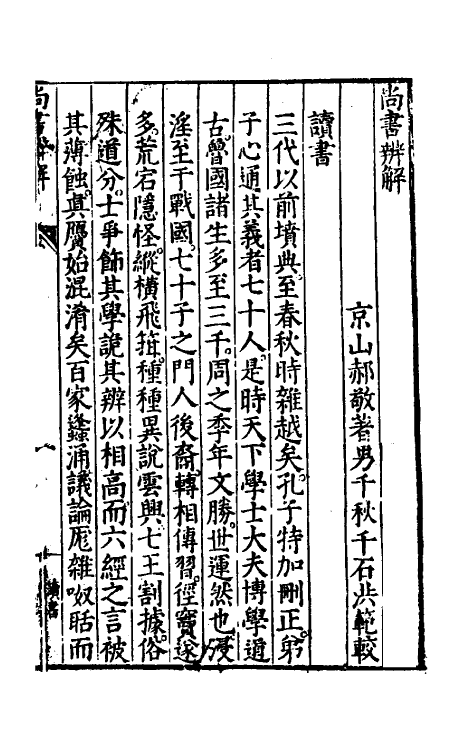 尚書辨解
京山郝敬著男千秋千石洪範較
讀書
三代以前墳典至春秋時雜越矣孔子特加刪正弟
子心通其義者七十人是時天下學士大夫博學道
古魯國諸生多至三千周之季年文勝世運然也浸
淫至于戰國七十子之門人後裔轉相傳習徑竇遂
多荒宕隱怪縱橫飛箝種種異說雲興七王割據俗
殊道分士爭飾其學詭其辨以相高而六經之言被
其薄蝕真贗始混淆矣百家蠭涌議論厖雜呶聒而
尚書辨解
一
讀書